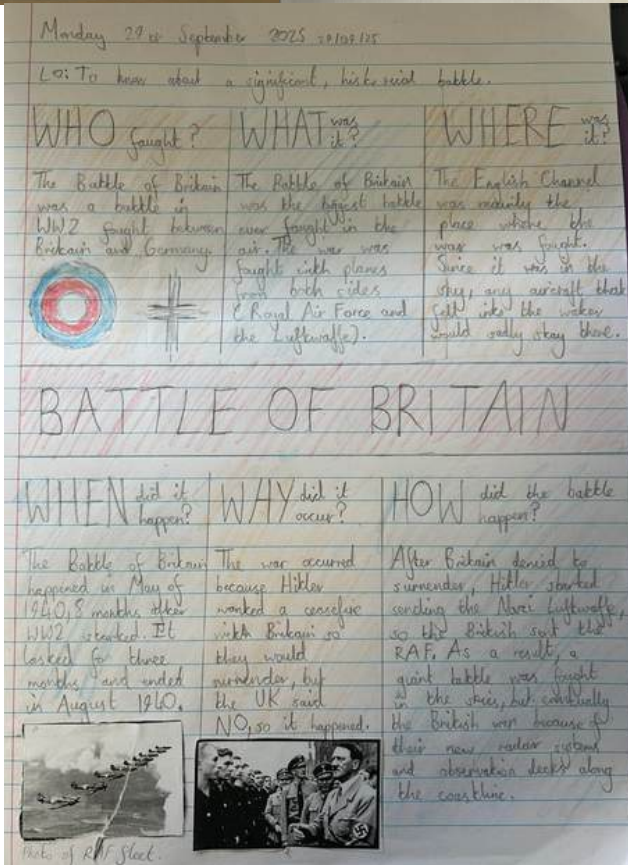 Monday 29th September 2025 29/09/25
LO: To know about a significant, historical battle.
WHO fought?
The Battle of Britain
was a battle in
WW2 fought between
Britain and Germany.
WHAT was it?
The Battle of Britain
was the biggest battle
ever fought in the
air. The war was
fought with planes
from both sides
(Royal Air Force and
the Luftwaffe).
WHERE was it?
The English Channel
was mainly the
place where the
war was fought.
Since it was in the
sky, any aircraft that
fell into the water
would sadly stay there.
BATTLE OF BRITAIN
WHEN did it happen?
The Battle of Britain
happened in May of
1940, 8 months after
WW2 started. It
lasted for three
months and ended
in August 1940.
Photo of RAF fleet.
WHY did it occur?
The war occurred
because Hitler
wanted a ceasefire
with Britain so
they would
surrender, but
the UK said
NO, so it happened.
HOW did the battle happen?
After Britain denied to
surrender, Hitler started
sending the Nazi Luftwaffe,
so the British sent the
RAF. As a result, a
giant battle was fought
in the skies, but eventually
the British won because of
their new radar systems
and observation decks along
the coastline.